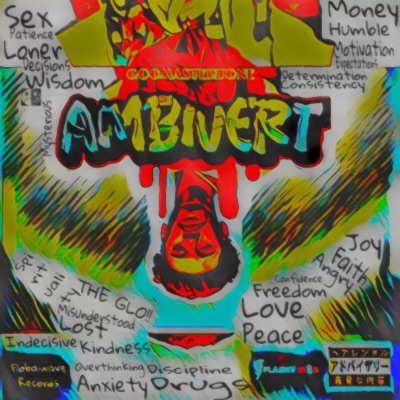 Sex
Patience
Loner
Decisions
Wisdom
Mysterious
Money
Humble
Motivation
Expectations
Determination
Consistency
AMBIVERT
Joy
Faith
Angry
Confidence
Freedom
Love
Peace
Spirituality
THE GLO!!
Misunderstood
Lost
Indecisive
Kindness
Overthinking
Discipline
Anxiety
Drugs
Records
アドバイザリー